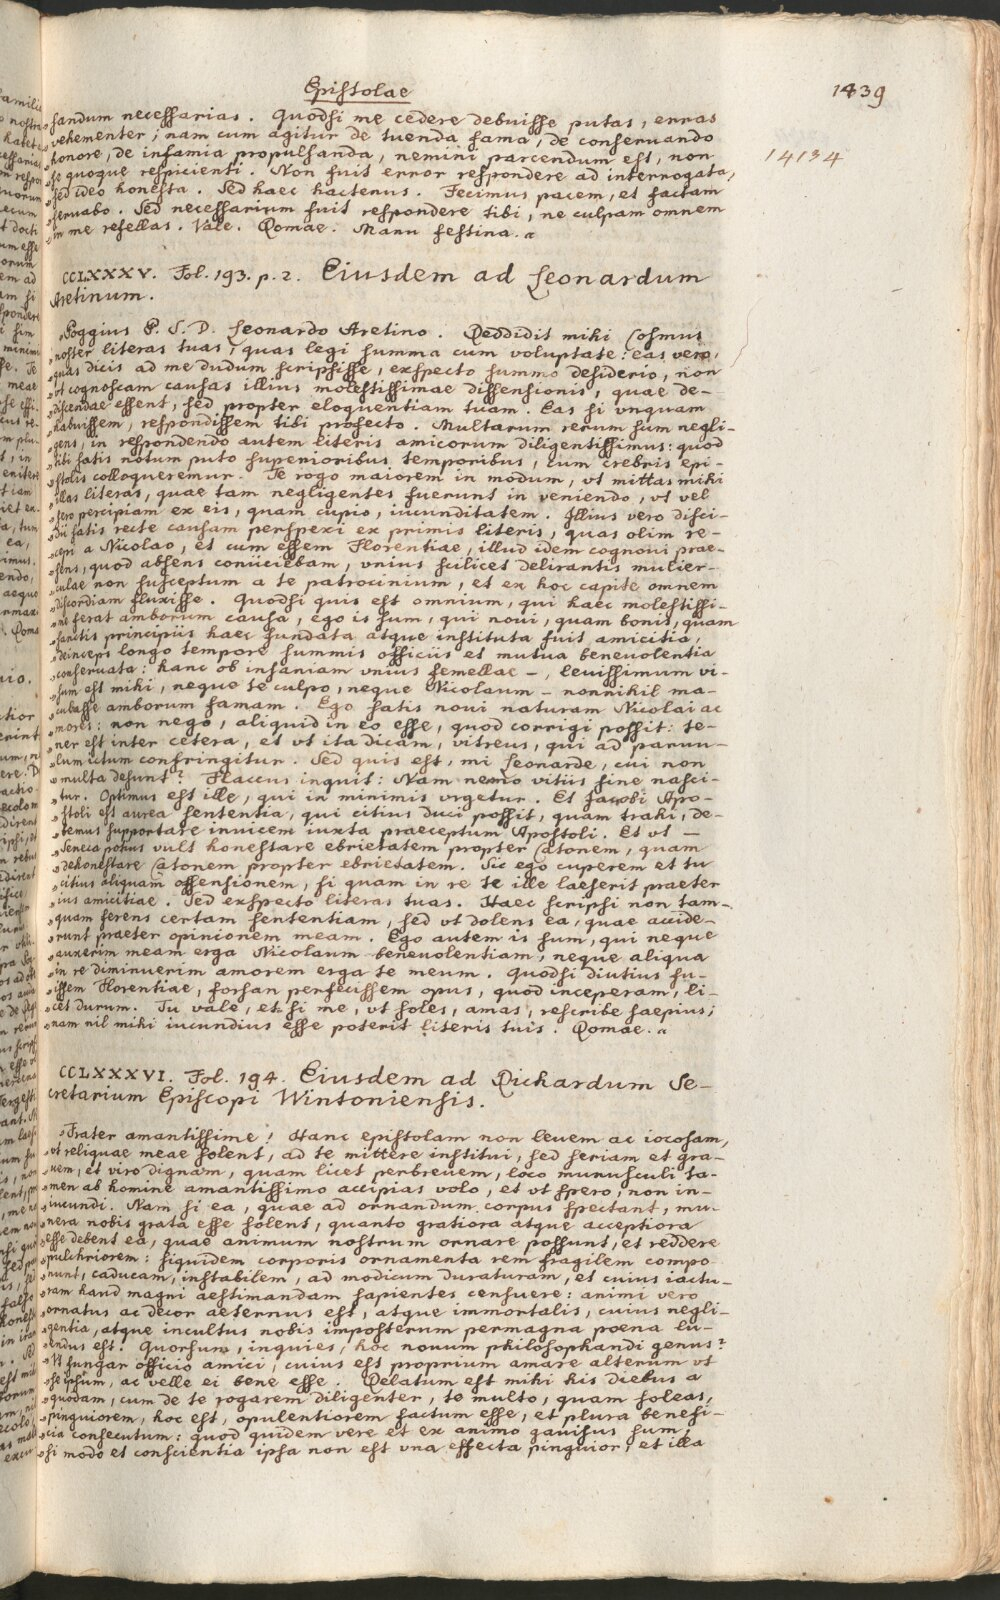 Epistolae
1439
14134
„sandum necessarias. Quodsi me cedere debuisse putas, erras
„vehementer; nam cum agitur de tuenda fama, de conseruando
„honore, de infamia propulsanda, nemini parcendum est, non
„se quoque respicienti. Non fuit error respondere ad interrogata,
„sed ideo honesta. Sed haec hactenus. Fecimus pacem, et factam
„seruabo. Sed necessarium fuit respondere tibi, ne culpam omnem
„in me resellas. Vale. Romae. Manu festina.“
CCLXXXV. Fol. 193. p. 2. Eiusdem ad Leonardum
Aretinum.
„Poggius P. S. D. Leonardo Aretino. Reddidit mihi Cosmus
„noster literas tuas, quas legi summa cum voluptate: eas vero,
„quas dicis ad me dudum scripsisse, exspecto summo desiderio, non
„vt cognoscam causas illius molestissimae dissensionis, quae de-
„discendae essent, sed propter eloquentiam tuam. Eas si vnquam
„habuissem, respondissem tibi profecto. Multarum rerum sum negli-
„gens, in respondendo autem literis amicorum diligentissimus: quod
„tibi satis notum puto superioribus temporibus, cum crebris epi-
„stolis colloqueremur. Te rogo maiorem in modum, vt mittas mihi
„illas literas, quae tam negligentes fuerunt in veniendo, vt vel
„sero percipiam ex eis, quam cupio, iucunditatem. Illius vero disci-
„dii satis recte causam perspexi ex primis literis, quas olim re-
„cepi a Nicolao, et cum essem Florentiae, illud idem cognoui prae-
„sens, quod absens coniiciebam, vnius scilicet delirantis mulier-
„culae non susceptum a te patrocinium, et ex hoc capite omnem
„discordiam fluxisse. Quodsi quis est omnium, qui haec molestissi-
„me ferat amborum causa, ego is sum, qui noui, quam bonis, quam
„sanctis principiis haec fundata atque instituta fuit amicitia,
„deinceps longo tempore summis officiis et mutua beneuolentia
„conseruata: hanc ob insaniam vnius femellae –, leuissimum vi-
„sum est mihi, neque te culpo, neque Nicolaum – nonnihil ma-
„culasse amborum famam. Ego satis noui naturam Nicolai ac
„mores: non nego, aliquid in eo esse, quod corrigi possit: te-
„ner est inter cetera, et vt ita dicam, vitreus, qui ad paruu-
„lum ictum confringitur. Sed quis est, mi Leonarde, cui non
„multa desunt? Flaccus inquit: Nam nemo vitiis sine nasci-
„tur. Optimus est ille, qui in minimis vrgetur. Et Jacobi Apo-
„stoli est aurea sententia, qui citius duci possit, quam trahi, de-
„bemus supportare inuicem iuxta praeceptum Apostoli. Et vt –
„Seneca potius vult honestare ebrietatem propter Catonem, quam
„dehonestare Catonem propter ebrietatem. Sic ego cuperem et tu
„citius aliquam offensionem, si quam in re te ille laeserit praeter
„ius amicitiae. Sed exspecto literas tuas. Haec scripsi non tam-
„quam ferens certam sententiam, sed vt dolens ea, quae accide-
„runt praeter opinionem meam. Ego autem is sum, qui neque
„auxerim meam erga Nicolaum beneuolentiam, neque aliqua
„in re diminuerim amorem erga te meum. Quodsi diutius fu-
„issem Florentiae, forsan perfecissem opus, quod inceperam, li-
„cet durum. Tu vale, et si me, vt soles, amas, rescribe saepius;
„nam nil mihi iucundius esse poterit literis tuis. Romae.“
CCLXXXVI. Fol. 194. Eiusdem ad Richardum Se-
cretarium Episcopi Wintoniensis.
„Frater amantissime! Hanc epistolam non leuem ac iocosam,
„vt reliquae meae solent, ad te mittere institui, sed seriam et gra-
„uem, et viro dignam, quam licet perbreuem, loco munusculi ta-
„men ab homine amantissimo accipias volo, et vt spero, non in-
„iucundi. Nam si ea, quae ad ornandum corpus spectant, mu-
„nera nobis grata esse solent, quanto gratiora atque acceptiora
„esse debent ea, quae animum nostrum ornare possunt, et reddere
„pulchriorem: siquidem corporis ornamenta rem fragilem compo-
„nunt, caducam, instabilem, ad modicum duraturam, et cuius iactu-
„ram haud magni aestimandam sapientes censuere: animi vero
„ornatus ac decor aeternus est, atque immortalis, cuius negli-
„gentia, atque incultus nobis imposterum permagna poena lu-
„endus est. Quorsum, inquies, hoc nouum philosophandi genus?
„Vt fungar officio amici, cuius est proprium amare alterum vt
„se ipsum, ac velle ei bene esse. Relatum est mihi his diebus a
„quodam, cum de te rogarem diligenter, te multo, quam soleas,
„pinguiorem, hoc est, opulentiorem factum esse, et plura benefi-
„cia consecutum: quod quidem vere et ex animo gauisus sum,
„si modo et conscientia ipsa non est vna effecta pinguior, et illa